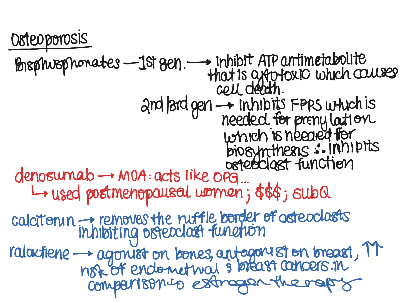 Osteoporosis
Bisphosphonates — 1st gen. → inhibit ATP antimetabolite
that is cytotoxic which causes
cell death.
2nd/3rd gen → inhibits FPPS which is
needed for prenylation
which is needed for
biosynthesis ∴ inhibits
osteoclast function
denosumab → MOA: acts like OPG...
↳ used postmenopausal women; $$$; subQ
calcitonin → removes the ruffle border of osteoclasts
inhibiting osteoclast function
→ agonist on bones, antagonist on breast, ↑↑
risk of endometrial & breast cancers in
comparison to estrogen therapy